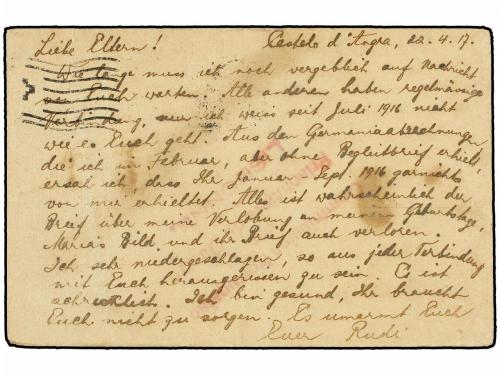 Liebe Eltern! Castelo d'Angra, 22.4.17.
Wie lange muss ich noch vergeblich auf Nachricht
von Euch warten. Alle anderen haben regelmässige
Verbindung, nur ich weiss seit Juli 1916 nicht
wie es Euch geht. Aus den Germaniaabrechnungen,
die ich im Februar, aber ohne Begleitbrief erhielt,
ersah ich dass Ihr Januar Sept. 1916 garnichts
von mir erhieltet. Alles ist wahrscheinlich der
Brief über meine Verlobung an meinem Geburtstage,
Maria's Bild und ihr Brief auch verloren.
Ich sehr niedergeschlagen, so aus jeder Verbindung
mit Euch herausgerissen zu sein. Es ist
schrecklich. Ich bin gesund, Ihr braucht
Euch nicht zu sorgen. Es umarmt Euch
Euer Rudi